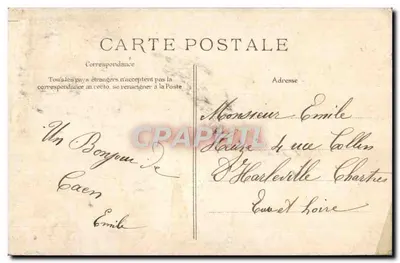 CARTE POSTALE
Correspondance
Tous les pays étrangers n'acceptent pas la
correspondance au recto, se renseigner à la Poste
Un Bonjour de
Caen
Emile
Adresse
Monsieur Emile
4 rue Collin
d'Harleville Chartres
Eure et Loire
CRAPAUD